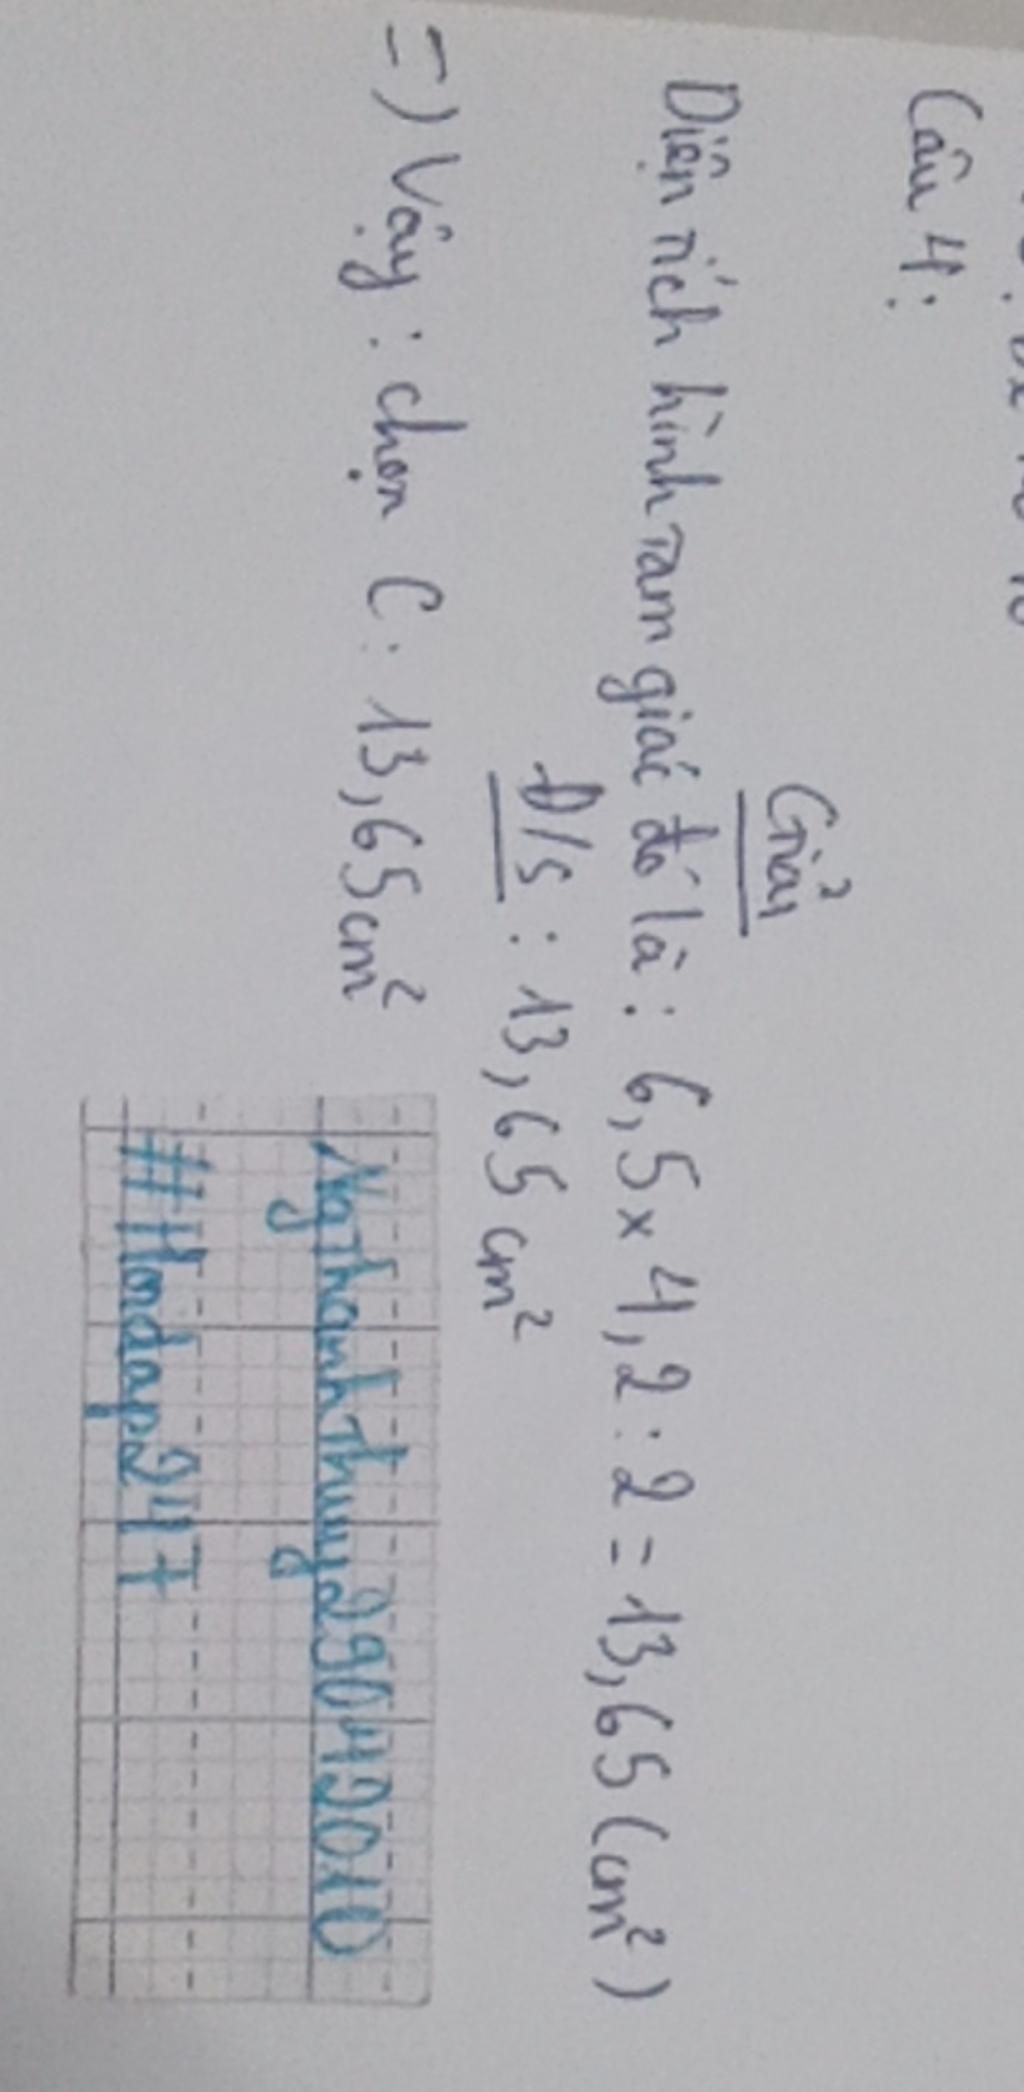 Câu 4:
Giải
Diện tích hình tam giác đó là: 6,5 x 4,2 : 2 = 13,65 (cm²)
Đ/S : 13,65 cm²
=) Vậy : chọn C: 13,65 cm²
NgThanhThuy29042010
#Hoidap247